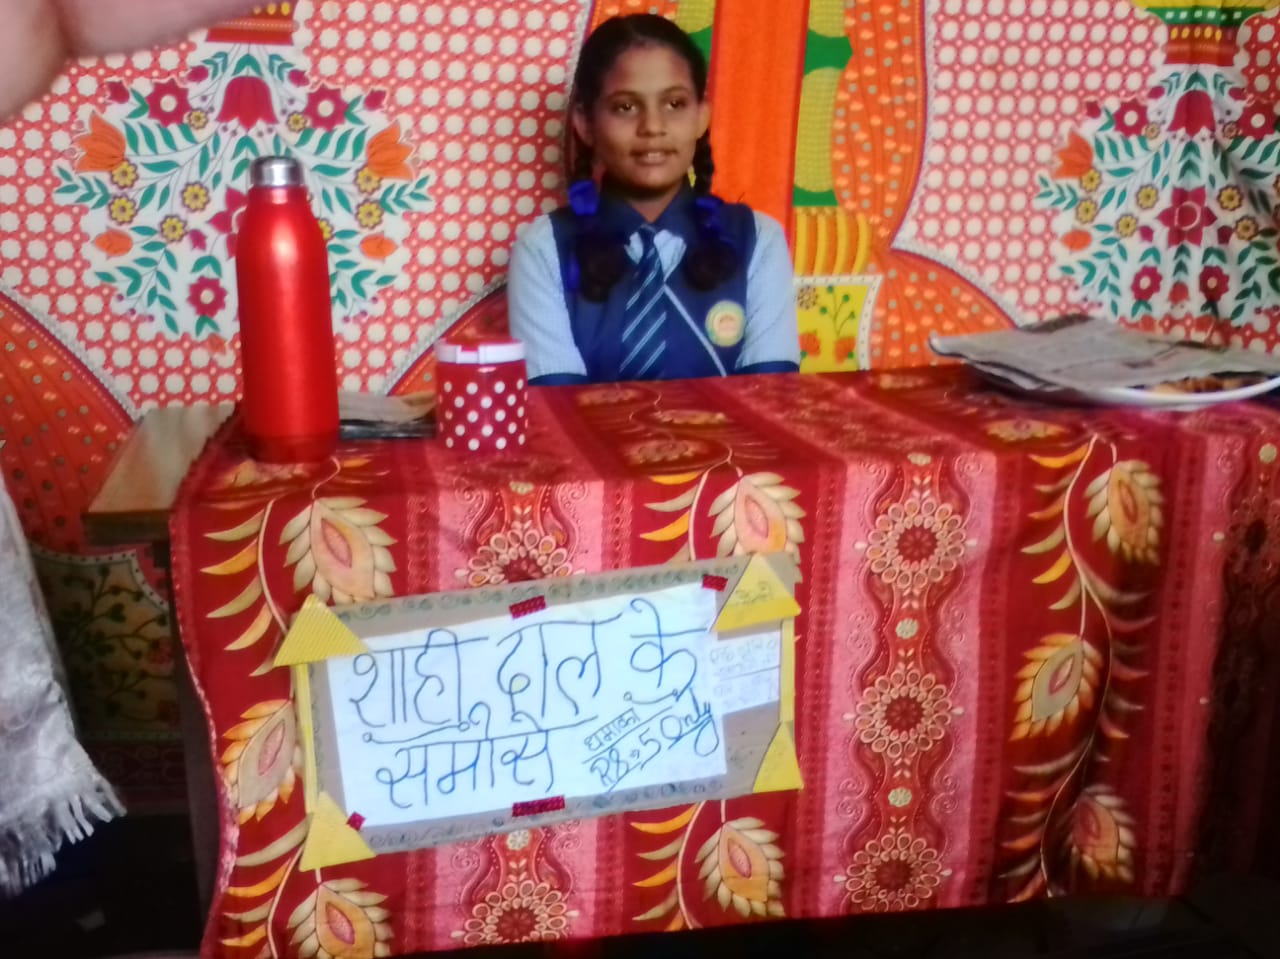 शाही दाल के
समोसे
धमाका
RS:- 5 Only